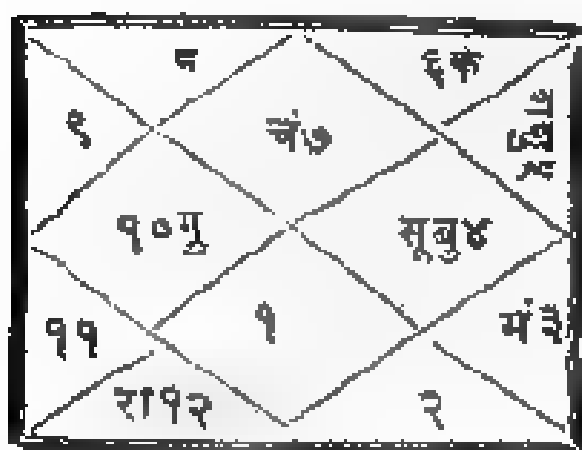 ६के
९
चं७
१०गु
सूबु४
११
१
मं३
रा१२
२